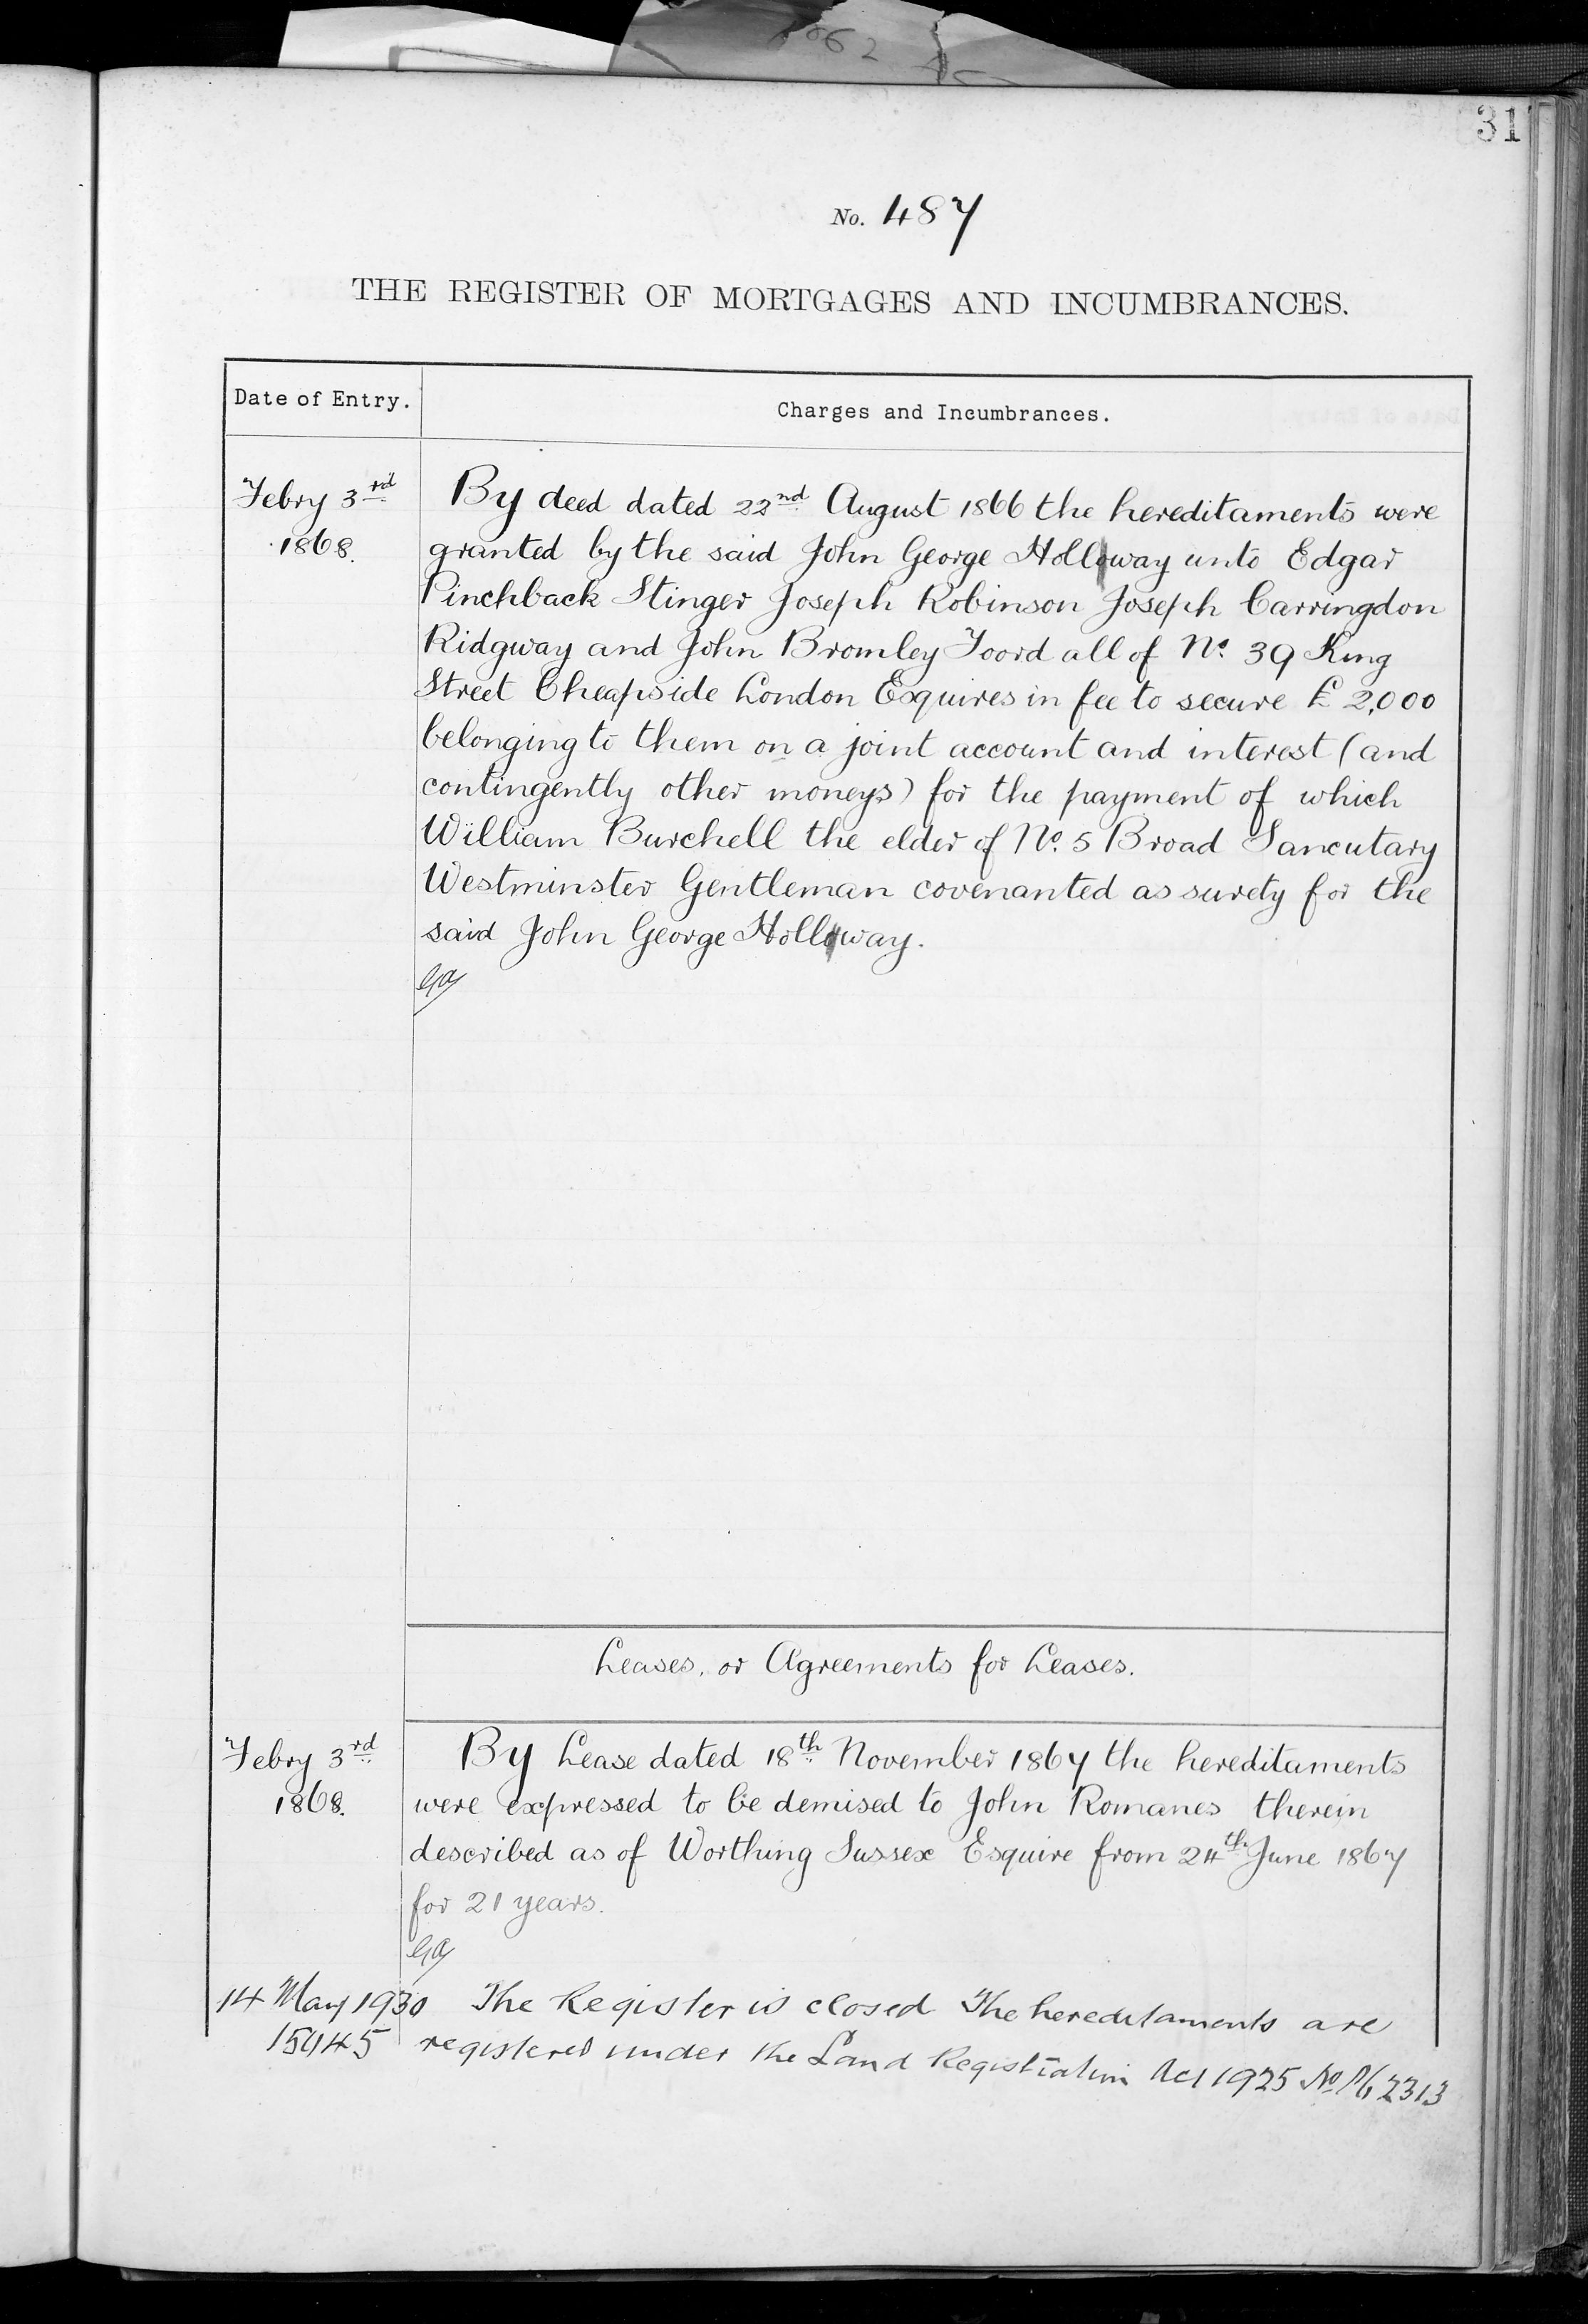 31
No. 487
THE REGISTER OF MORTGAGES AND INCUMBRANCES.
Date of Entry.
Charges and Incumbrances.
Febry 3rd
1868.
By deed dated 22nd August 1866 the hereditaments were
granted by the said John George Holloway unto Edgar
Pinchback Stinger Joseph Robinson Joseph Carringdon
Ridgway and John Bromley Foord all of No. 39 King
Street Cheapside London Esquires in fee to secure £2,000
belonging to them on a joint account and interest (and
contingently other moneys) for the payment of which
William Burchell the elder of No. 5 Broad Sancutary
Westminster Gentleman covenanted as surety for the
said John George Holloway.
Leases, or Agreements for Leases.
Febry 3rd
1868.
By Lease dated 18th November 1867 the hereditaments
were expressed to be demised to John Romanes therein
described as of Worthing Sussex Esquire from 24th June 1867
for 21 years.
14 May 1930
The Register is closed The hereditaments are
registered under the Land Registration Act 1925 No. 2313